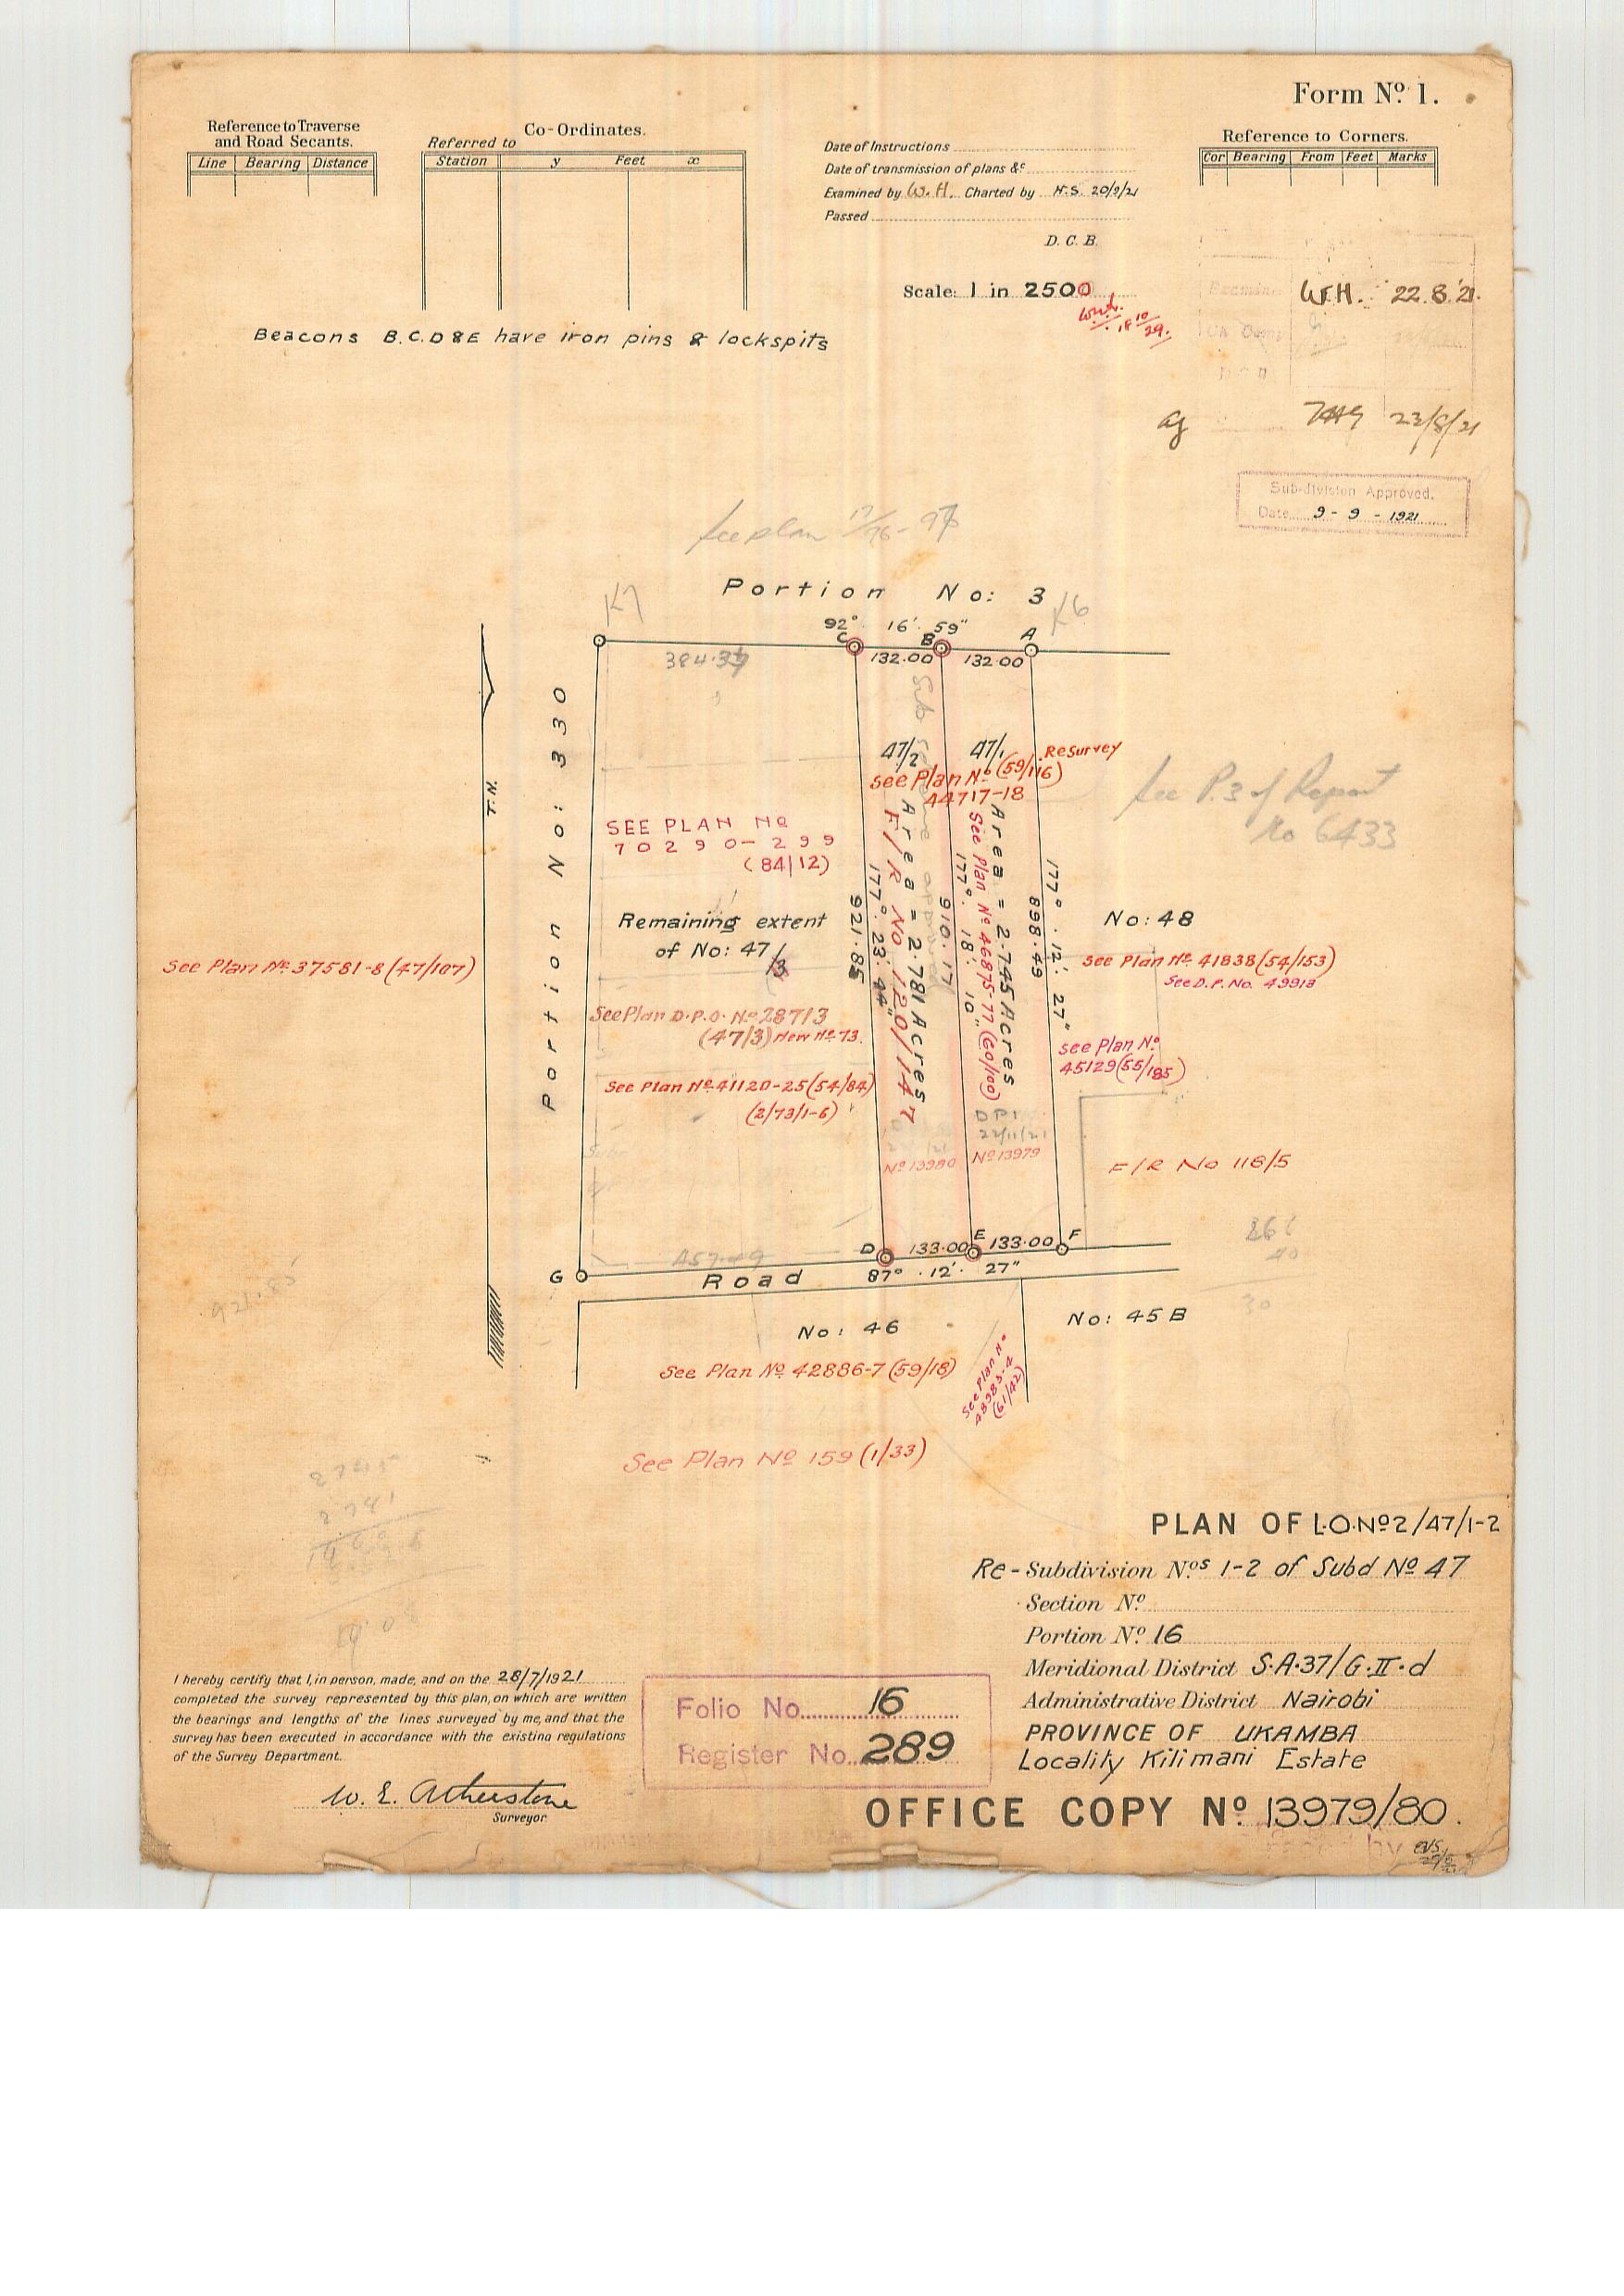 Form Nº 1.
Reference to Traverse
and Road Secants.
Line Bearing Distance
Co-Ordinates.
Referred to
Station y Feet x
Date of Instructions
Date of transmission of plans &c
Examined by W.H. Charted by H.S. 20/9/21
Passed
D. C. B.
Scale: 1 in 2500
Reference to Corners.
Cor Bearing From Feet Marks
W.H. 22.8.21.
23/8/21
Sub-division Approved.
Date 9 - 9 - 1921
Beacons B.C.D&E have iron pins & lockspits
See plan 17/76 - 93
Portion No: 3
K7
K6
92° 16' 59"
C B A
384.39
132.00 132.00
T.N.
Portion No: 330
47/2 47/1 Resurvey
See Plan Nº (59/116)
44717-18
SEE PLAN Nº
70290-299
(84/12)
See P.3 of Report
No 6433
Remaining extent
of No: 47/3
921.85
177°. 23'. 44"
F/R No 120/147
Area = 2.781 Acres
910.17
177°. 18'. 10"
See Plan Nº 46875-77 (60/100)
Area = 2.745 Acres
898.49
177°. 12'. 27"
No: 48
See Plan Nº 37581-8 (47/107)
See Plan Nº 41838 (54/153)
See D.P. No. 49913
See Plan D.P.O. Nº 28713
(47/3) New Nº 73.
See Plan Nº
45129 (55/185)
See Plan Nº 41120-25 (54/84)
(2/73/1-6)
DP1
22/11/21
Nº 13980 Nº 13979
F/R No 118/5
457.49
D 133.00 E 133.00 F
G
Road 87°. 12'. 27"
921.85
No: 46
No: 45 B
See Plan Nº 42886-7 (59/18)
See Plan Nº
48983-4
(61/42)
See Plan Nº 159 (1/33)
PLAN OF L.O. Nº 2/47/1-2
Re-Subdivision Nos 1-2 of Subd Nº 47
Section Nº
Portion Nº 16
Meridional District S.A.37/G.II.d
Administrative District Nairobi
PROVINCE OF UKAMBA
Locality Kilimani Estate
OFFICE COPY Nº 13979/80.
I hereby certify that I, in person, made, and on the 28/7/1921
completed the survey represented by this plan, on which are written
the bearings and lengths of the lines surveyed by me, and that the
survey has been executed in accordance with the existing regulations
of the Survey Department.
W. E. Atherstone
Surveyor
Folio No. 16
Register No. 289